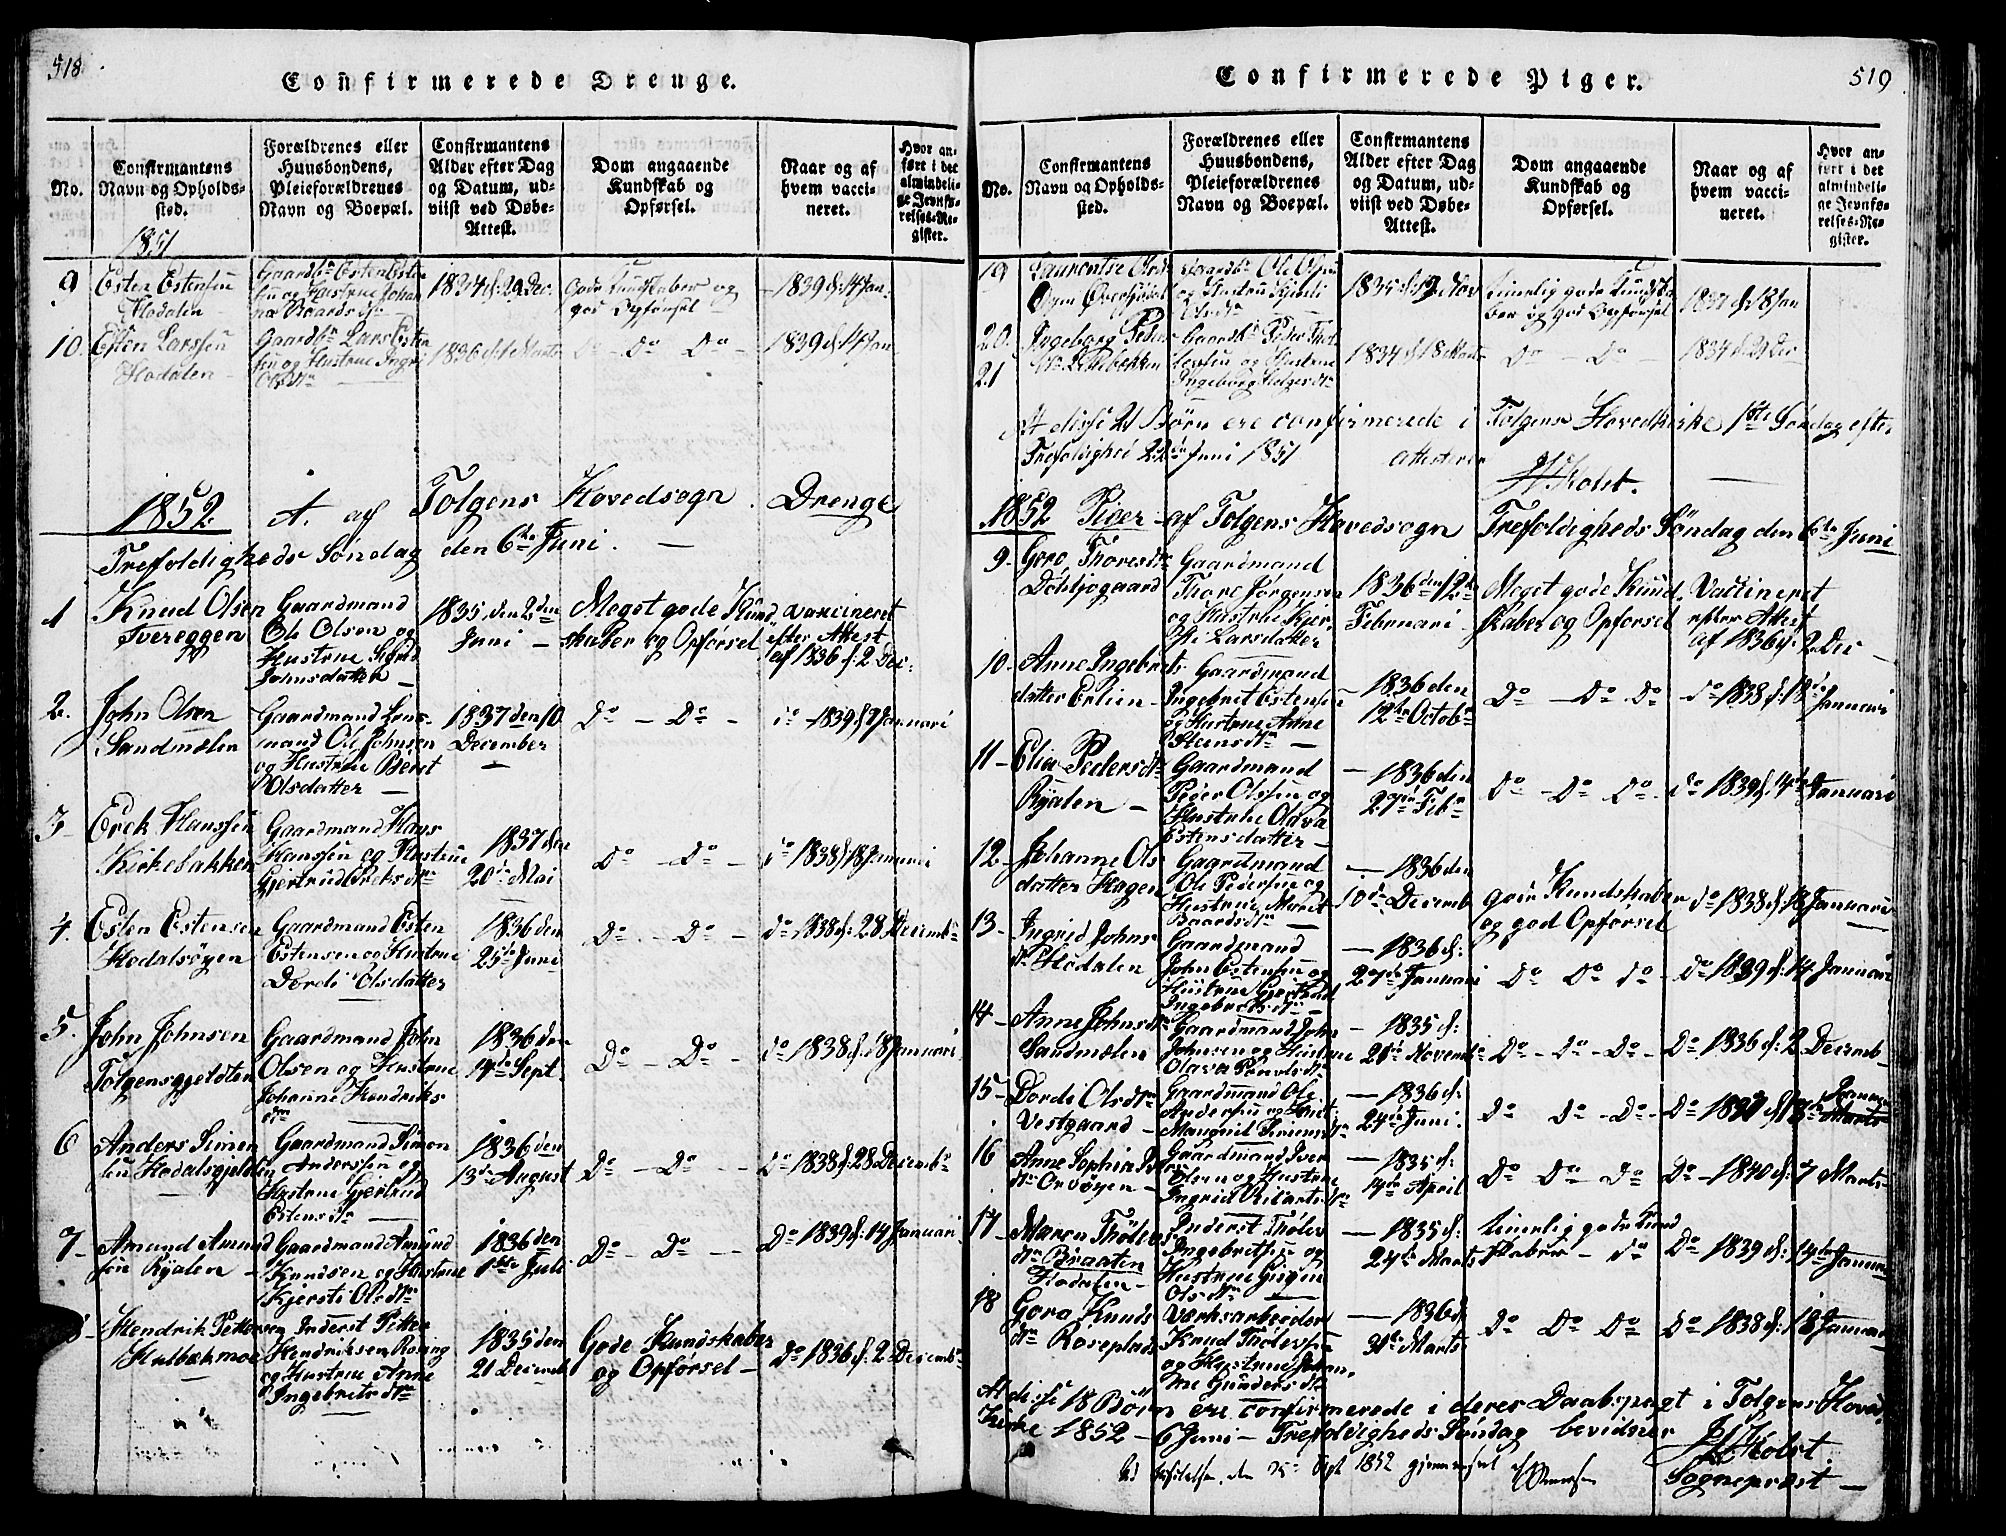 518
Confirmerede Drenge.
No.
Confirmantens
Navn og Opholds-
sted.
Forældrenes eller
Huusbondens,
Pleieforældrenes
Navn og Boepæl.
Confirmantens
Alder efter Dag
og Datum, ud-
viist ved Døbe-
Attest.
Dom angaaende
Kundskab og
Opførsel.
Naar og af
hvem vacci-
neret.
Hvor an-
ført i det
almindeli-
ge Jevnfø-
relses-Re-
gister.
1851
9
Esten Estensen
Hodalen
1834 d. 29 Dec.
Gode Kundskaber og
god Opførsel
1839 d. 14 Jan.
10.
Esten Larssen
Hodalen
1836 d. 1 Marts
Do - Do Do
1839 d. 14 Jan
1852. A. af Tolgens Hovedsogn. Drenge
Trefoldigheds Søndag den 6te Juni. —
1
Knud Olsen
Tvereggen
Gaardmand
Ole Olsen og
Hustrue Sigrid
Johnsdatter —
1835 den 2den
Juni —
Meget gode Kund-
skaber og Opførsel
vaccineret
efter Attest
af 1836 d: 2 Dec:
2.
John Olsen
Sandmælen
Gaardmand Lens-
mand Ole Johnsen
og Hustrue Beret
Olsdatter —
1837 den 10
December
Do — Do —
do — 1839 d 7 Januari
3
Erek Hanssen
Kirkebakken
Gaardmand Hans
Hanssen og Hustrue
Gjertrud Ereksdtr
1837 den
20de Mai
Do — Do —
do 1838 d 18 Januari
4.
Esten Estensen
Hodalsøyen
Gaardmand Esten
Estensen og Hustrue
Dordi Olsdatter
1836 den
25de Juni
Do — Do —
do 1838 d: 28 Decembr
5.
John Johnsen
Tolgensgjelten
Gaardmand John
Olsen og Hustrue
Johanne Hendriks
dtr
1836 den
14de Sept.
Do — Do —
do 1838 d: 18 Januari
6
Anders Simen
sen Hodalsgjelten
Gaardmand Simon
Anderssen og
Hustrue Gjertrud
Estensdtr
1836 den
13de August
Do — Do —
Do 1838 d: 28 Decembr
7
Amund Amund
sen Ryalen
Gaardmand Amund
Knudsen og Hustrue
Kjersti Olsdtr
1836 den
1ste Juli
Do — Do —
Do 1839 d: 14 Januari
8
Hendrik Petters
Hulbækmoe
Inderst Petter
Hendriksen Røsing
og Hustrue Anne
Ingebritsdtr
1835 den
21 Decemb
Gode Kundskaber
og Opførsel —
do 1836 d: 2 Decembr
519
Confirmerede Piger.
No.
Confirmantens
Navn og Opholds-
sted.
Forældrenes eller
Huusbondens,
Pleieforældrenes
Navn og Boepæl.
Confirmantens
Alder efter Dag
og Datum, ud-
viist ved Døbe-
Attest.
Dom angaaende
Kundskab og
Opførsel.
Naar og af
hvem vacci-
neret.
Hvor an-
ført i det
almindeli-
ge Jevnfø-
relses-Re-
gister.
19
1835 d: 19 Nov
Temmelig gode Kundska
ber og god Opførsel
1837 d 18 Jan
20.
21
Ingeborg Peders
1834 d 18 Marts
Do — Do —
1834 d. 2 Dec
At disse 21 Børn ere confirmerede i Tolgens Hovedkirke 1ste Søndag efter
Trefoldighed 22de Juni 1851 attesterer
Holst.
1852 Piger af Tolgens Hovedsogn Trefoldigheds Søndag den 6te Juni
9
Goro Thoresdtr
Døhlsjogaard
Gaardmand
Thore Jørgensen
og Hustrue Kjer-
sti Larsdatter
1836 den 12te
Februari
Meget gode Kund-
skaber og Opførsel
Vaccineret
efter Attest
af 1836 d. 2 Dec —
10
Anne Ingebrits-
datter Erlien
Gaardmand
Ingebret Estensen
og Hustrue Anne
Steensdtr
1836 den
12te Octobr
Do — Do. Do
do 1838 d: 18de Januari
11
Elia Pedersdtr
Ryalen —
Gaardmand
Peder Olssen og
Hustrue Oleva
Estensdatter
1836 den
27de Febr
Do — Do — Do
do 1839 d: 14de Januari
12
Johanne Ols
datter Hagen
Gaardmand
Ole Pedersen og
Hustrue Marit
Baardsdtr
1836 den
10de Decemb
gode Kundskaber
og god Opførsel
do 1838 d. 18 Januari
13
Ingrid Johns
dtr Hodalen
Gaardmand
John Estensen og
Hustrue Gjertrud
Ingebretsdtr
1836 d:
27de Januari
Do Do do
do 1839 d: 14 Januari
14
Anne Johnsdtr
Sandmælen
Gaardmand John
Johnsen og Hustrue
1835 d:
28de Novemb
Do — do — Do —
Do 1836 d: 2 Decemb
15
Dordi Olsdtr
Vestgaard
Gaardmand Ole
Anderssen og Hust:
1836 d:
24de Juni
Do Do — Do —
16
Anne Sophia Ivers
dtr Orvøyen —
Gaardmand Iver
Olsen og Hustrue
1835 d:
14de April
Do Do — Do
Do — 1840 d: 7 Marts
17
Maren Thølevs
dtr Braaten
Hodalen
Inderst Thølev
Ingebritsen og
Hustrue Gurgen
Olsdtr
1835 d:
24de Marts
temelig gode Kund
skaber — do
Do 1839 d: 14de Januar
18
Goro Knuds
dtr Roseplads
Værksarbeider
Knud Thølevsen
og Hustrue Johan-
ne Gundersdtr
1836 d
31te Marts
Do Do Do
Do 1838 d. 18 Januar
At disse 18 Børn ere confirmerede i deres Daabspagt i Tolgens Hoved
Kirke 1852 — 6 Juni — Trefoldigheds Søndag bevidner
Holst
Sogneprest —
1852